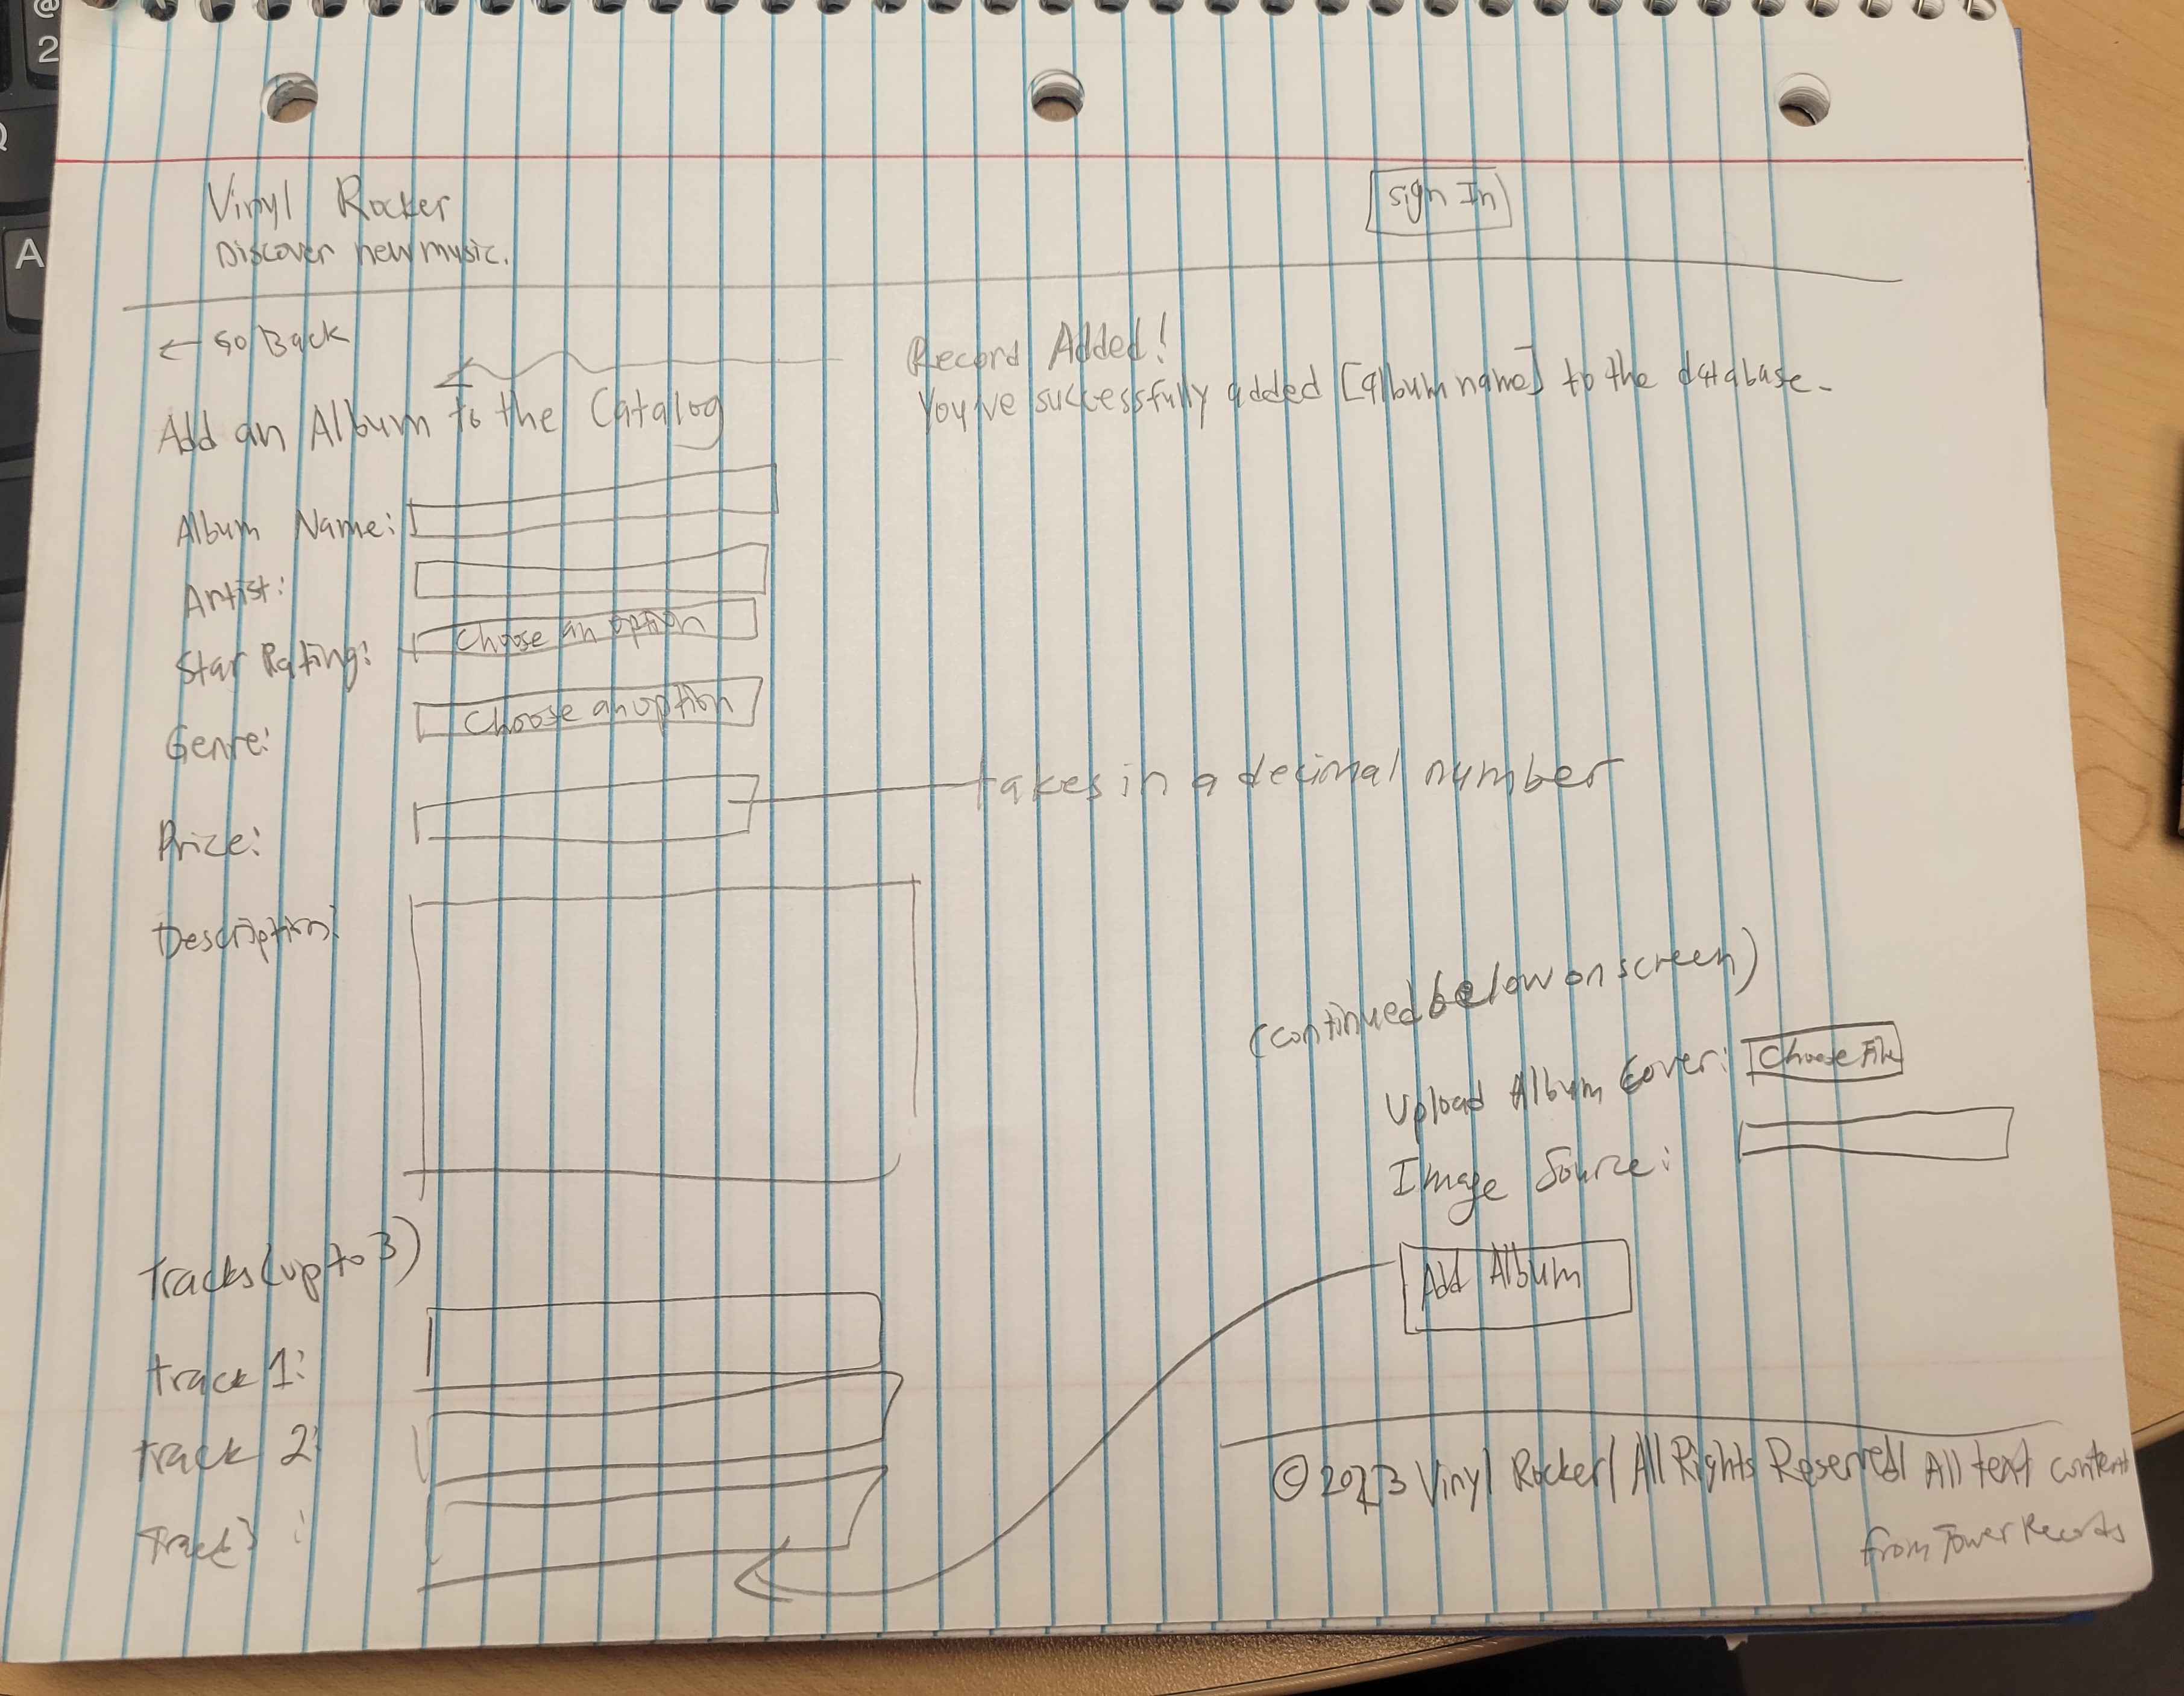 @
2
Q
A
Vinyl Rocker
Discover new music.
Sign In
← Go Back
Record Added!
You've successfully added [album name] to the database.
Add an Album to the Catalog
Album Name:
Artist:
Star Rating: Choose an option
Genre: Choose an option
Price:
takes in a decimal number
Description:
Tracks (up to 3)
Track 1:
Track 2:
Track 3:
(continued below on screen)
Upload Album Cover: Choose File
Image Source:
Add Album
© 2023 Vinyl Rocker | All Rights Reserved | All text content
from Tower Records